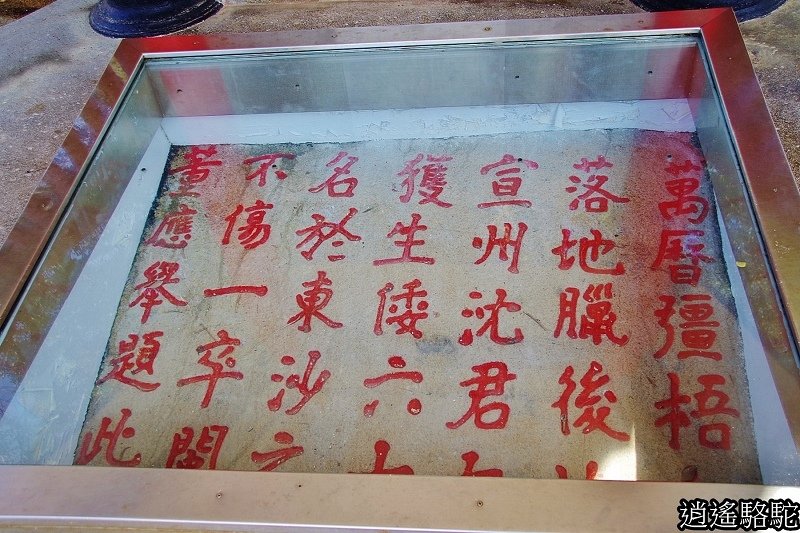 萬曆彊梧
落地臘後
宣州沈君
獲生倭六
名於東沙之
不傷一卒閩
董應舉題此
逍遙駱駝